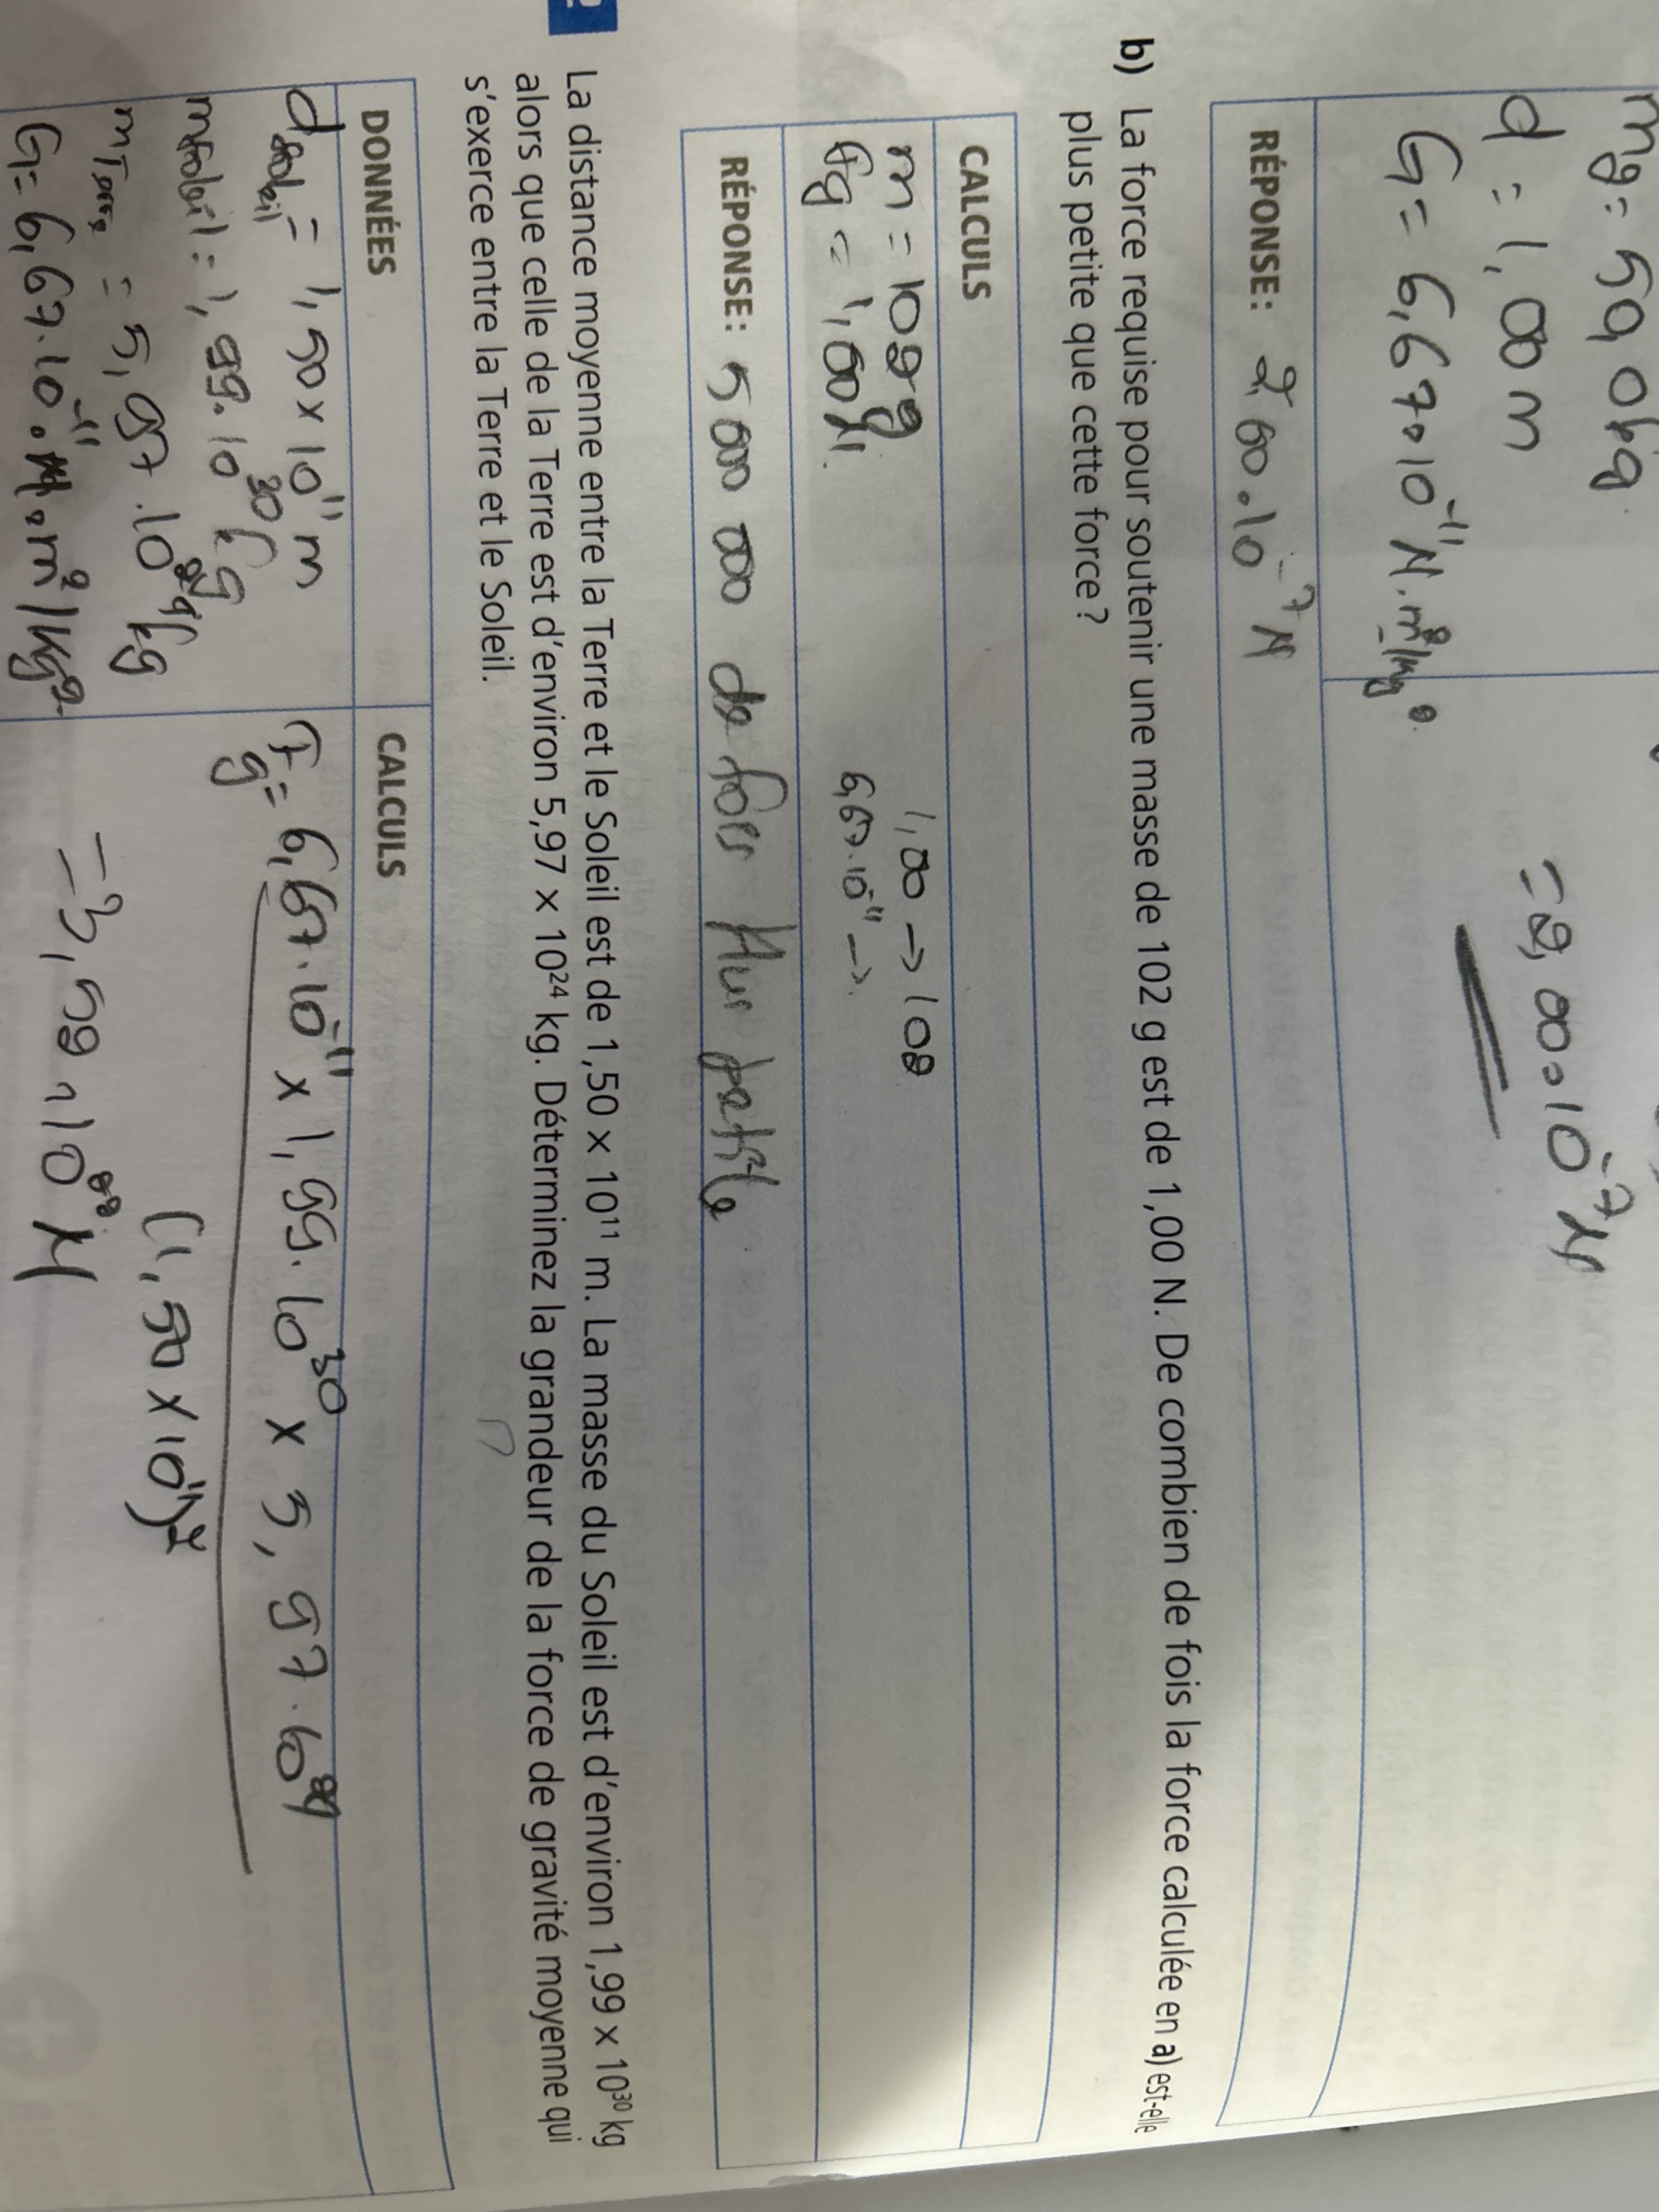 mg = 50,0kg
d = 1,00 m
G = 6,67.10⁻¹¹ N.m²/kg²
= 2,00.10⁻⁷N
RÉPONSE: 2,00.10⁻⁷N
b) La force requise pour soutenir une masse de 102 g est de 1,00 N. De combien de fois la force calculée en a) est-elle
plus petite que cette force?
CALCULS
m = 102g
Fg = 1,00N.
1,00 → 102
6,67.10⁻¹¹ →.
RÉPONSE: 5 000 000 de fois plus petite
La distance moyenne entre la Terre et le Soleil est de 1,50 × 10¹¹ m. La masse du Soleil est d'environ 1,99 × 10³⁰ kg
alors que celle de la Terre est d'environ 5,97 × 10²⁴ kg. Déterminez la grandeur de la force de gravité moyenne qui
s'exerce entre la Terre et le Soleil.
DONNÉES
d soleil = 1,50 × 10¹¹ m
m soleil = 1,99.10³⁰ kg
m Terre = 5,97.10²⁴ kg
G = 6,67.10⁻¹¹.N.m²/kg².
CALCULS
Fg = 6,67.10⁻¹¹ × 1,99.10³⁰ × 5,97.10²⁴
(1,50 × 10¹¹)²
= 3,52.10²² N